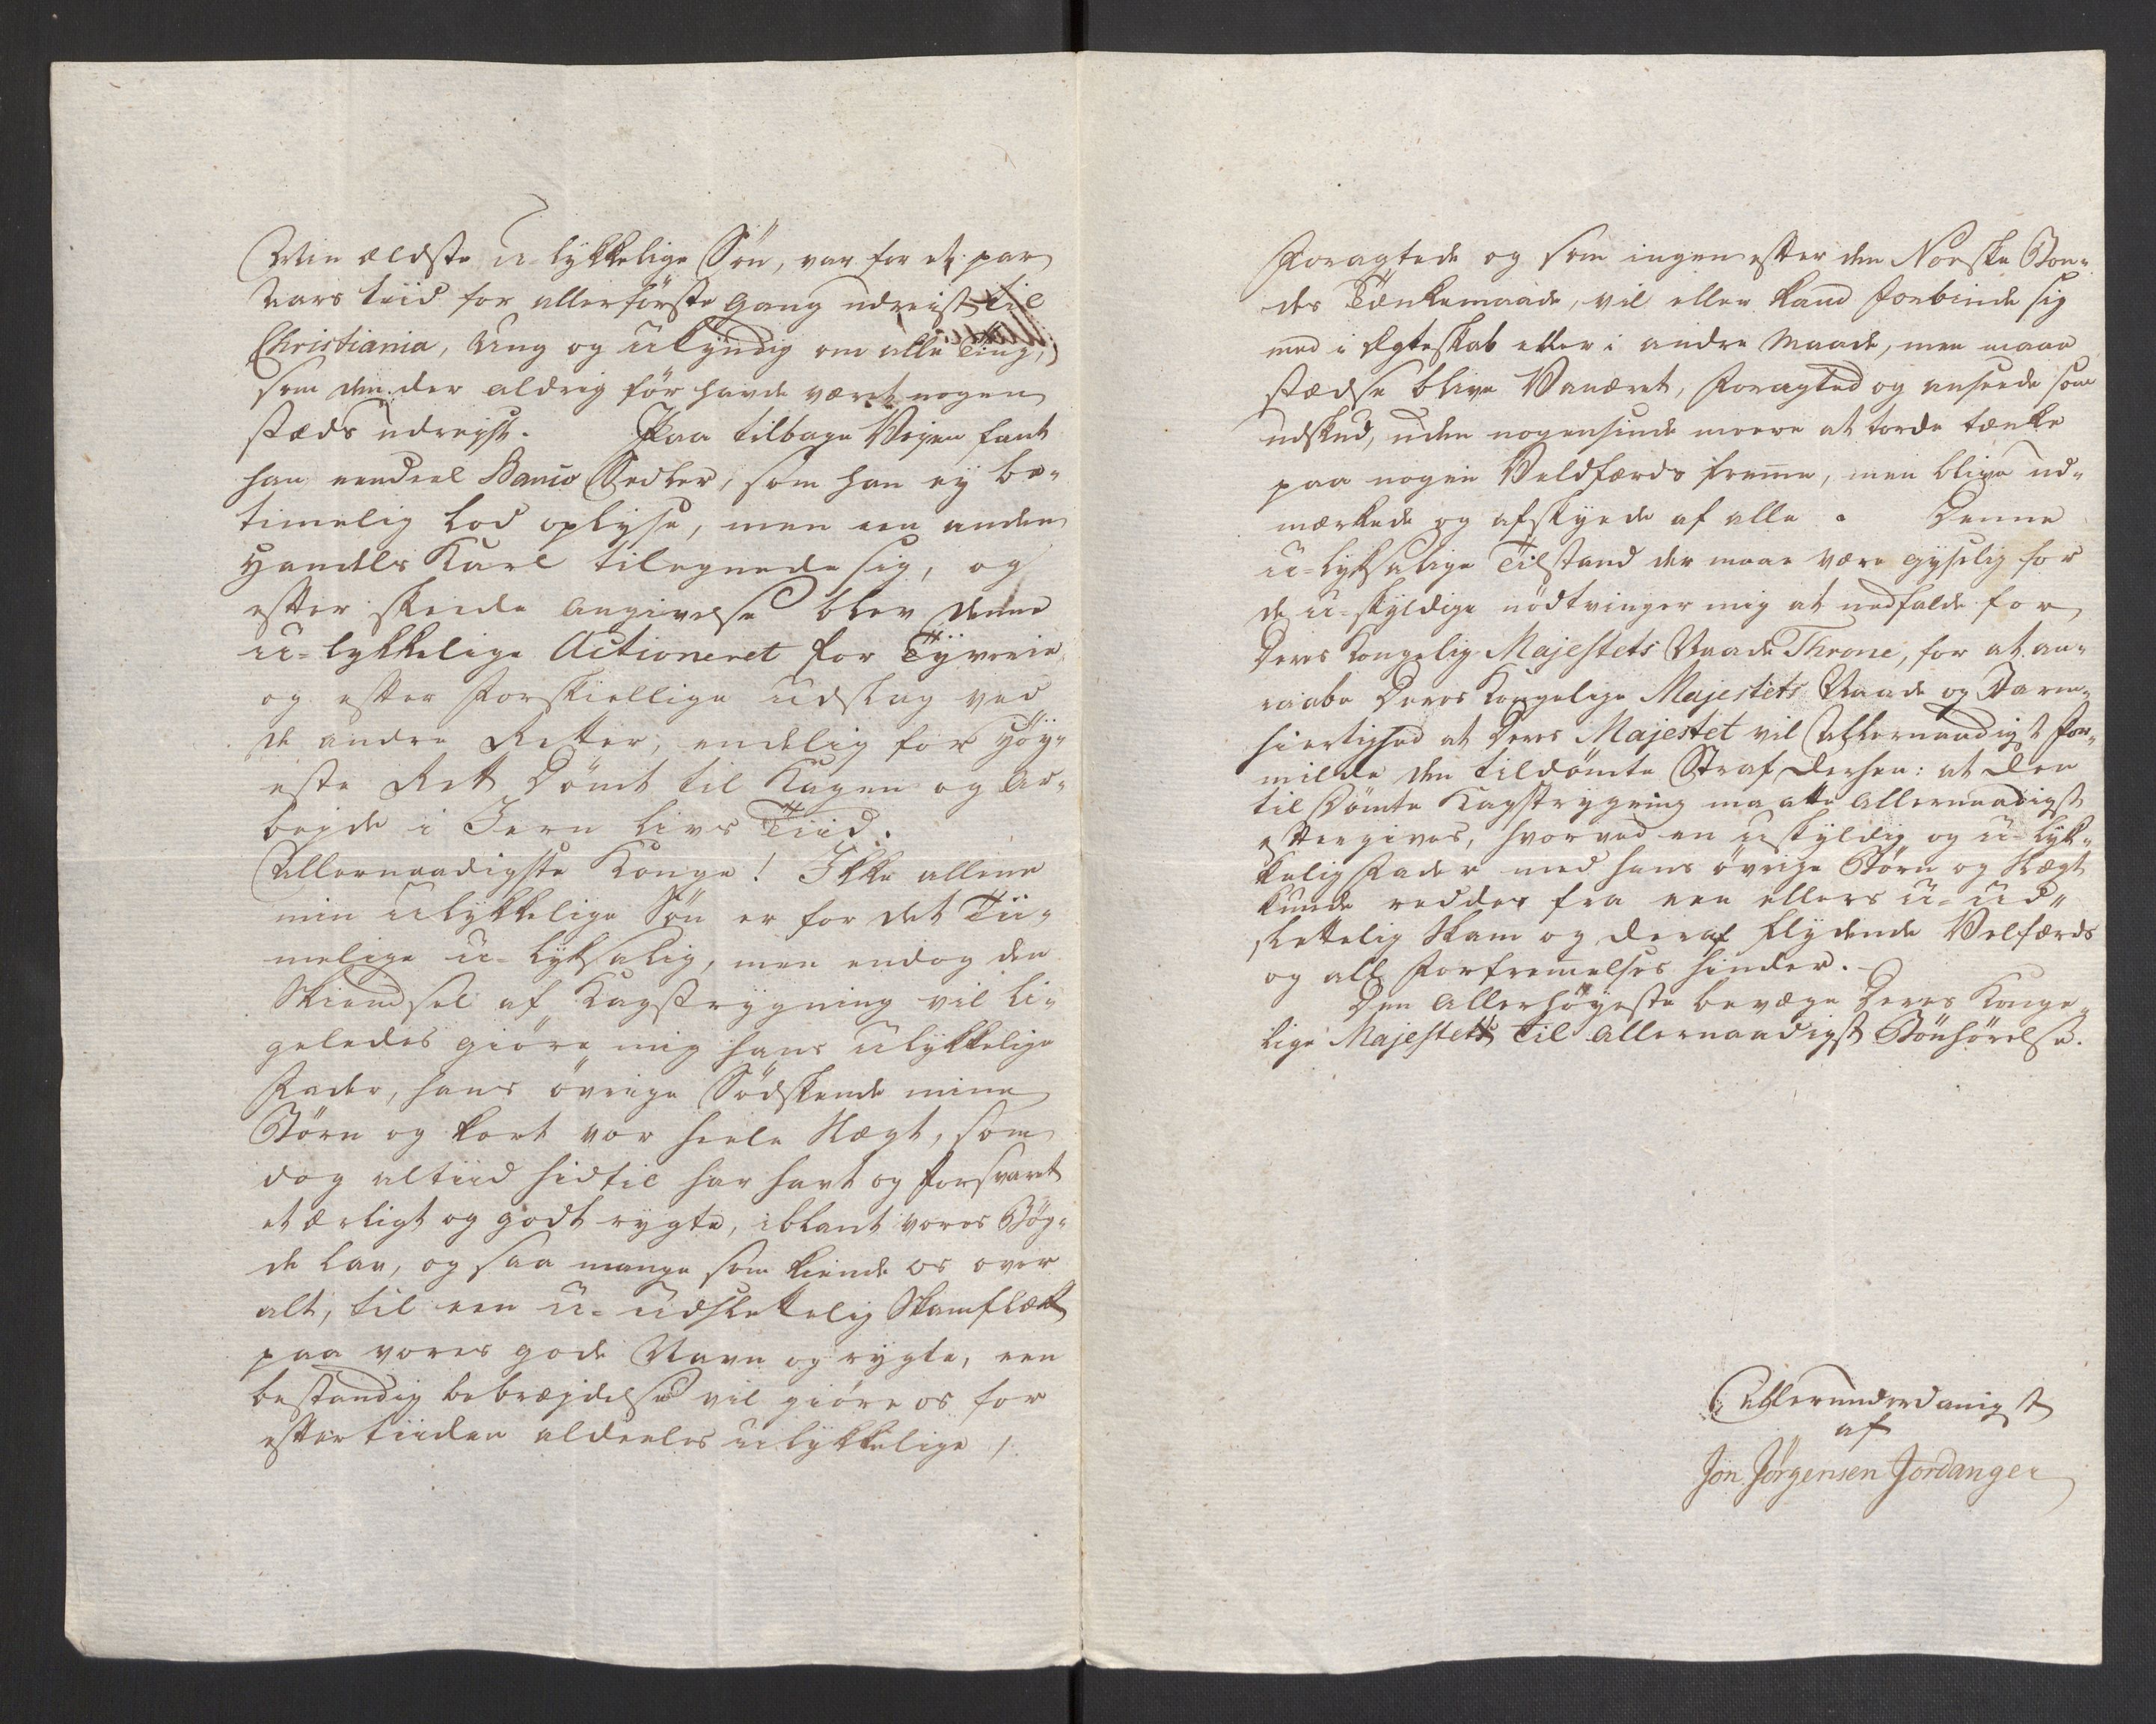 Min ældste u-lykkelige Søn, var for et par
Aars tiid for allerførste gang udreist til
Christiania, Ung og ukyndig om alle Ting,
som den der aldrig før havde været nogen
stæds udreyst. Paa tilbage Vejen fant
han eendeel Banco Sedler, som han ey be-
timelig lod oplyse, men een anden
Handels Karl tilegnede sig, og
efter skeede angivelse blev denne
u-lykkelige Actioneret for Tyverie
og efter forskiellige udslag ved
de andre Retter, endelig for Høy-
este Rett Dömt til Kagen og Ar-
bejde i Jern livs Tiid.
Allernaadigste Konge! Ikke allene
min ulykkelige Søn er for det Tii-
melige u-lyksalig, men endog den
Skiendsel af Kagstrygning vil li-
geledes giöre mig hans ulykkelige
Fader, hans övrige Sødskende mine
Börn og kort vor heele Slægt, som
dog altiid hidtil har havt og forsvaret
et ærligt og godt rygte, iblant vores Böy-
de lav, og saa mange som kiende os over
alt, til een u-udslettelig Skamflæk
paa vores gode Navn og rygte, een
bestandig bebrejdelse vil giöre os for
eftertiiden aldeeles ulykkelige,
Foragtede og som ingen efter den Norske Bon-
des Tænkemaade, vil eller kand forbinde sig
med i Ægteskab eller i andre Maade, men maae
stædse blive Vanæret, foragted og ansede som
udskud, uden nogensinde meere at torde tænke
paa nogen Veldfærds fremme, men blive ud-
mærkede og afskyede af alle. Denne
u-lyksalige Tilstand der maae være gyselig for
de u-skyldige nödtvinger mig at nedfalde for
Deres Kongelig Majestets Naade Throne, for at an-
raabe Deres Kongelige Majestets Naade og Barm-
hiertighed at Deres Majestet vil Allernaadigst for-
milde den tildömte Straf derhen: at den
til dömte Kagstrygning maatte Allernaadigst
eftergives, hvorved en uskyldig og u-lyk-
kelig Fader med hans övrige Börn og Slægt
kunde reddes fra een ellers u-ud-
slettelig Skam og deraf flydende Velfærds
og all forfremelses hinder.
Den Allerhöyeste bevæge Deres Konge-
lige Majestets til Allernaadigst Bönhörelse.
Allerunderdanigst
af
Jon Jørgensen Jordanger